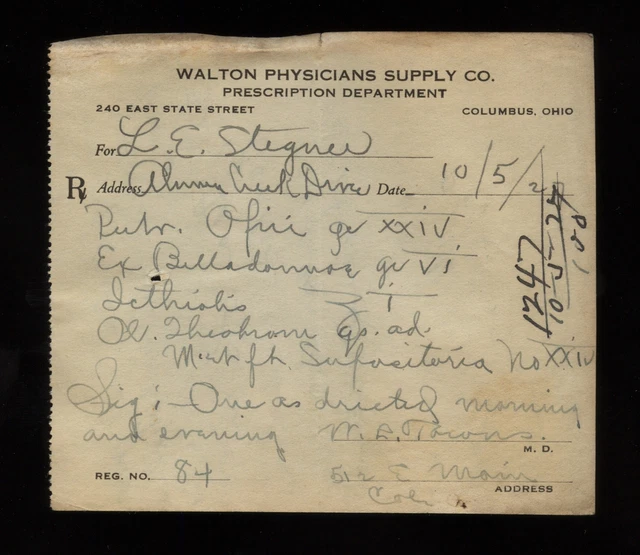 WALTON PHYSICIANS SUPPLY CO.
PRESCRIPTION DEPARTMENT
240 EAST STATE STREET COLUMBUS, OHIO
For L. E. Stegner
℞ Address Alumn Creek Drive Date 10/5/24
Pulv. Opii gr XXIV
Ex Belladonnae gr VI
Icthiolis ʒ i
Ol. Theobrom qs. ad.
M et ft. Supositoria No XXIV
Sig: One as dricted morning
and evening W. E. Towns.
M. D.
REG. NO. 84 512 E Main
Col. O.
ADDRESS
1247
10-5-24
100